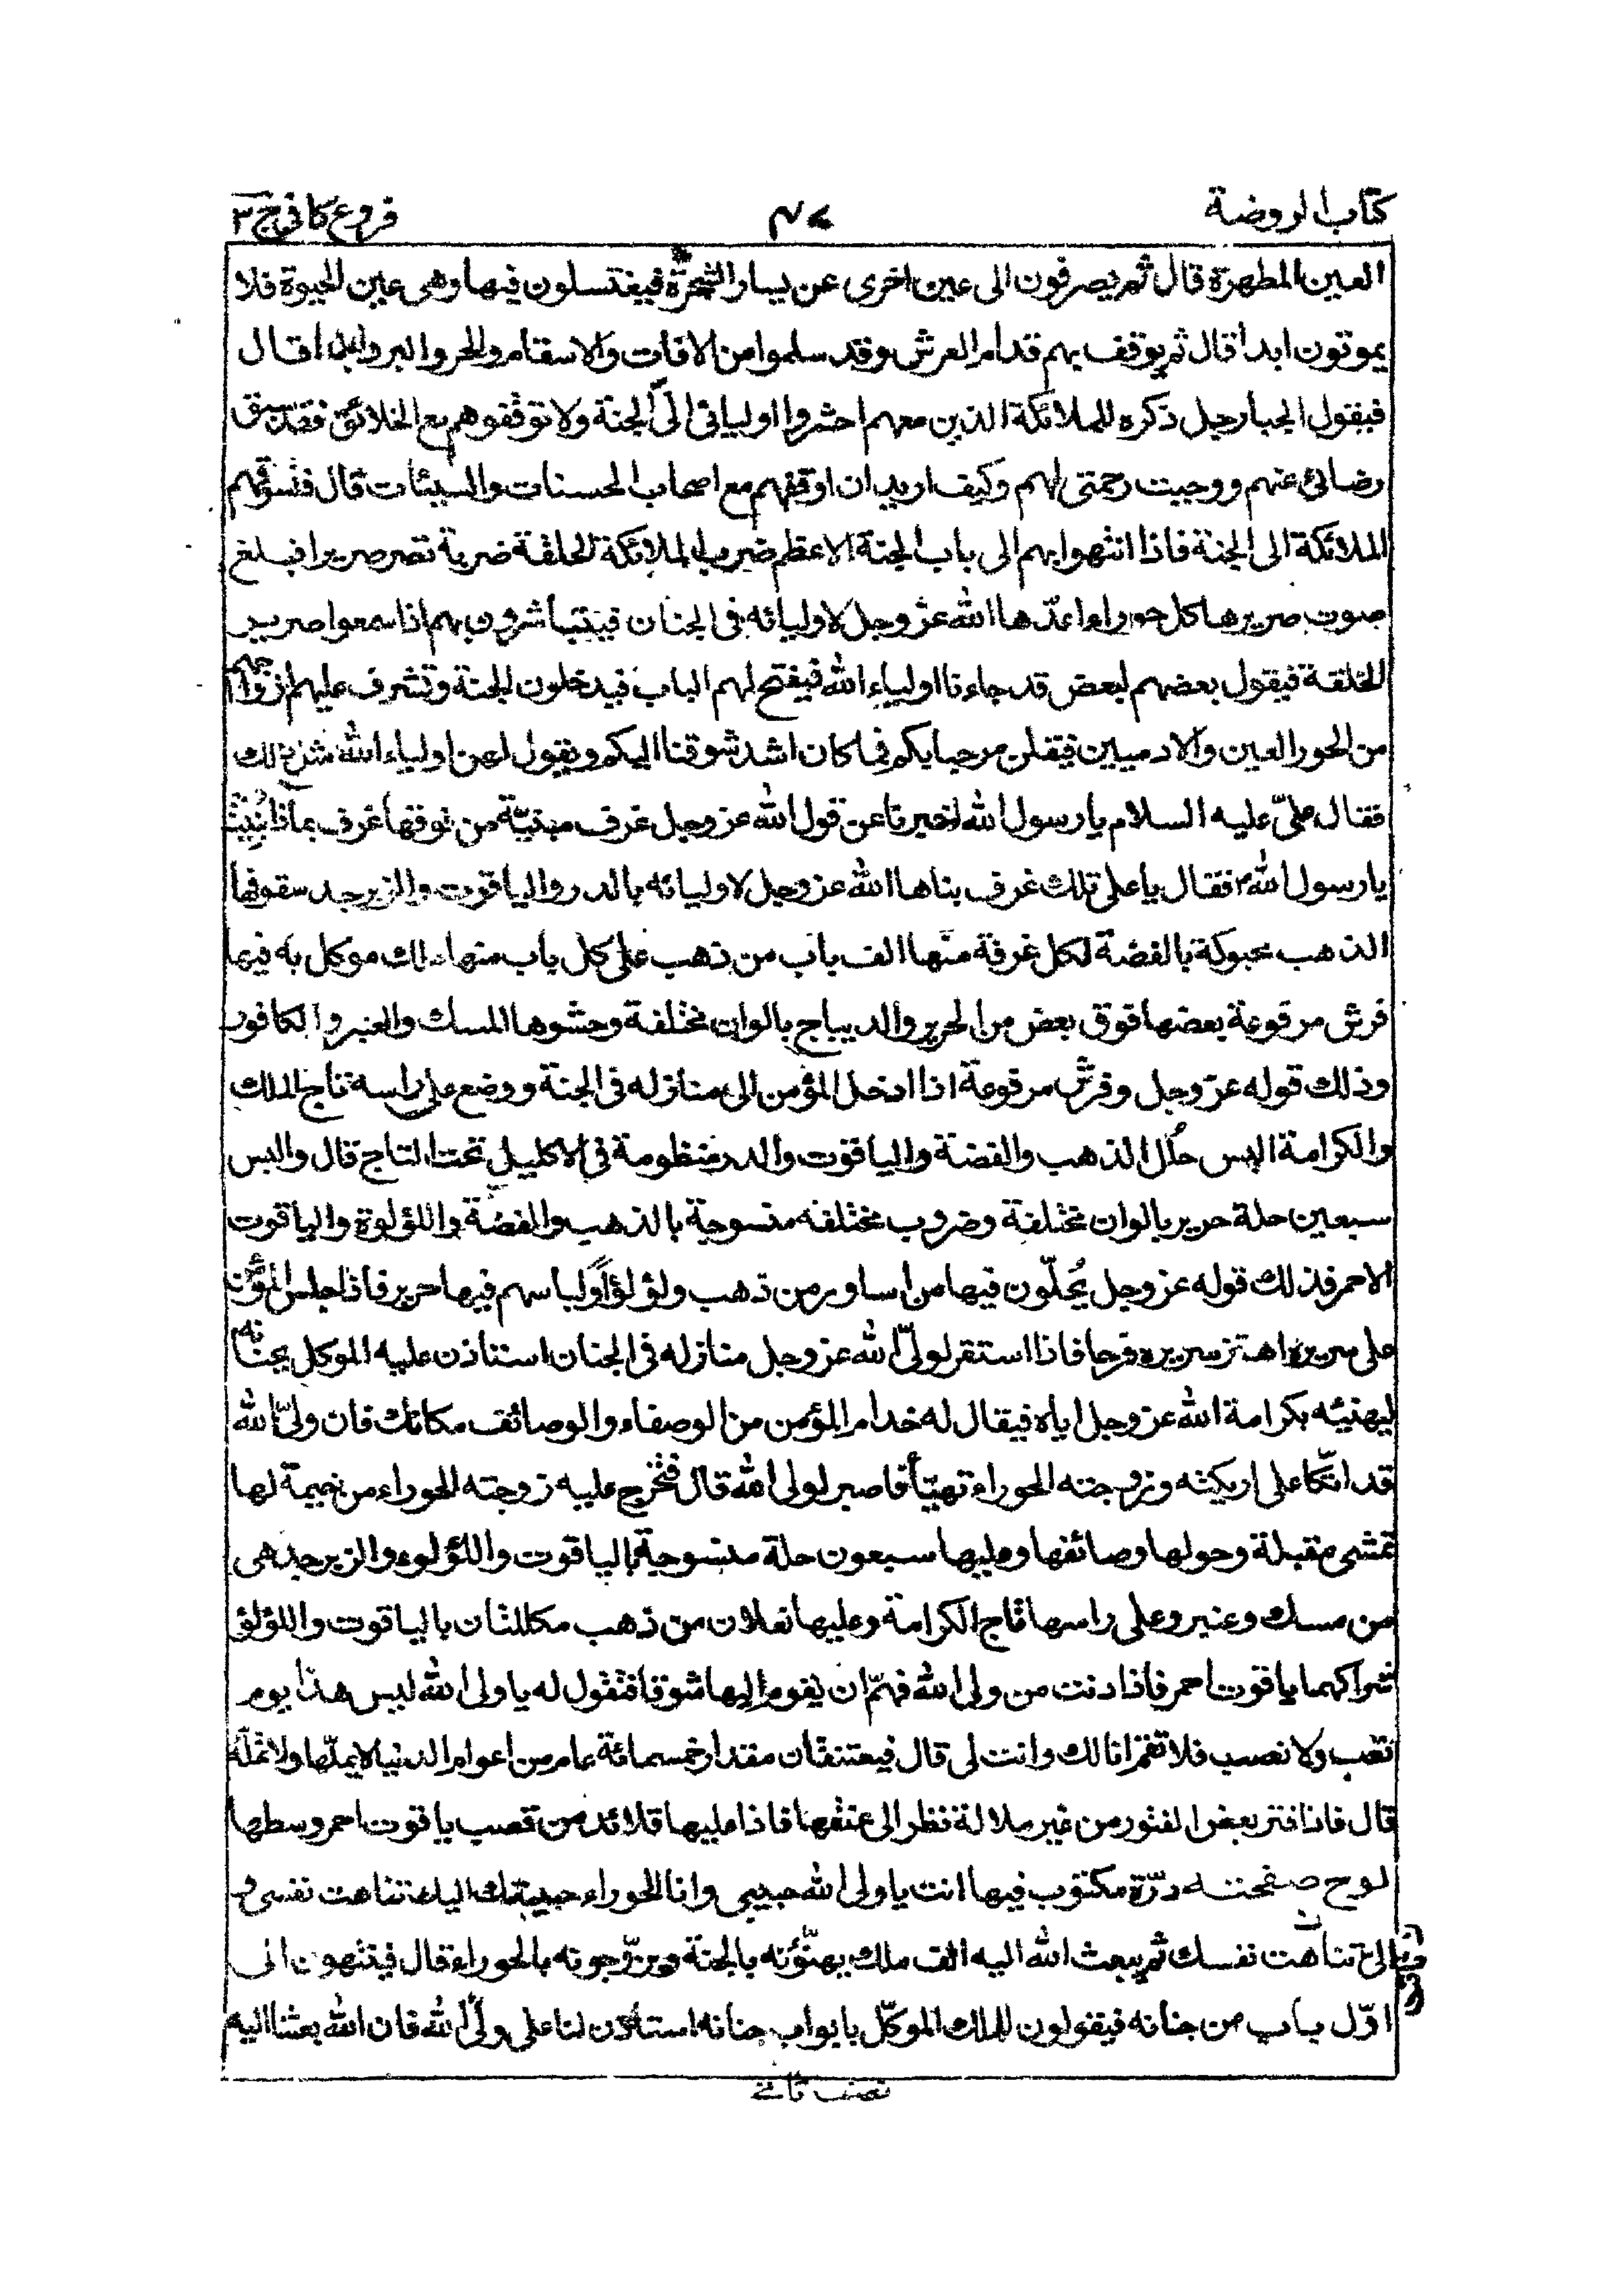 كتاب الروضة
فروع كافى ج ٣
العين المطهرة قال ثم يصرفون الى عين اخرى عن يسار الشجرة فيغتسلون فيها وهى عين الحيوة فلا
يموتون ابدا قال ثم يوقف بهم قدام العرش وقد سلموا من الافات والاسقام والحر والبرد ابدا قال
فيقول الجبار جل ذكره للملائكة الذين معهم احشروا اوليائى الى الجنة ولا توقفوهم مع الخلائق فقد سبق
رضائى عنهم ووجبت رحمتى لهم وكيف اريد ان اوقفهم مع اصحاب الحسنات والسيئات قال فتسوقهم
الملائكة الى الجنة فاذا انتهوا بهم الى باب الجنة الاعظم ضرب الملائكة الحلقة ضربة تصر صريرا فيبلغ
صوت صريرها كل حوراء اعدّها الله عز وجل لاوليائه فى الجنان فيتباشرون بهم اذا سمعوا صرير
الحلقة فيقول بعضهم لبعض قد جاءنا اولياء الله فيفتح لهم الباب فيدخلون الجنة وتشرف عليهم ازواجهم
من الحور العين والادميين فيقلن مرحبا بكم فما كان اشد شوقنا اليكم ويقول لهن اولياء الله مثل ذلك
فقال علىّ عليه السلام يا رسول الله اخبرنا عن قول الله عز وجل غرف مبنيّة من فوقها غرف بماذا بُنيت
يا رسول الله ؐ فقال يا على تلك غرف بناها الله عز وجل لاوليائه بالدر والياقوت والزبرجد سقوفها
الذهب محبوكة بالفضة لكل غرفة منها الف باب من ذهب على كل باب منها ملك موكل به فيها
فرش مرفوعة بعضها فوق بعض من الحرير والديباج بالوان مختلفة وحشوها المسك والعنبر والكافور
وذلك قوله عز وجل وفرش مرفوعة اذا ادخل المؤمن الى منازله فى الجنة ووضع على راسه تاج الملك
والكرامة البس حُلل الذهب والفضة والياقوت والدر منظومة فى الاكليل تحت التاج قال والبس
سبعين حلة حرير بالوان مختلفة وضروب مختلفه منسوجة بالذهب والفضة واللؤلوة والياقوت
الاحمر فذلك قوله عز وجل يُحلّون فيها من اساور من ذهب ولؤلؤاً ولباسهم فيها حرير فاذا جلس المؤمن
على سريره اهتز سريره فرحا فاذا استقر لولىّ الله عز وجل منازله فى الجنان استاذن عليه الموكل بجنانه
ليهنيئه بكرامة الله عز وجل اياه فيقال له خدام المؤمن من الوصفاء والوصائف مكانك فان ولىّ الله
قد اتّكا على اريكته وزوجته الحوراء تهيّأ فاصبر لولى الله قال فتخرج عليه زوجته الحوراء من خيمة لها
تمشى مقبلة وحولها وصائفها وعليها سبعون حلة منسوجة بالياقوت واللؤلوء والزبرجد هى
من مسك وعنبر وعلى راسها تاج الكرامة وعليها نعلان من ذهب مكللتان بالياقوت واللؤلؤ
شراكهما ياقوت احمر فاذا دنت من ولى الله فهمّ ان يقوم اليها شوقا فتقول له يا ولى الله ليس هذا يوم
تعب ولا نصب فلا تقم انا لك وانت لى قال فيعتنقان مقدار خمسمائة عام من اعوام الدنيا لا يملّها ولا تملّه
قال فاذا فتر بعض الفتور من غير ملالة نظر الى عنقها فاذا عليها قلائد من قصب ياقوت احمر وسطها
لوح صفحته درّة مكتوب فيها انت يا ولى الله حبيبى وانا الحوراء حبيبتك اليك تناهت نفسى و
الىّ تناهت نفسك ثم يبعث الله اليه الف ملك يهنّؤنه بالجنة ويزوّجونه بالحوراء قال فينتهون الى
اوّل باب من جنانه فيقولون للملك الموكّل بابواب جنانه استأذن لنا على ولىّ الله فان الله بعثنا اليه
نصف ثانے